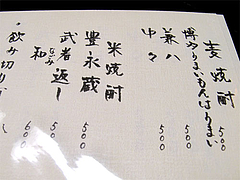 麦焼酎
博多うまいもんはうまい 500
兼八 500
中々 500
米焼酎
豊永蔵 500
武者返し 500
和 なごみ 600
・飲み切り